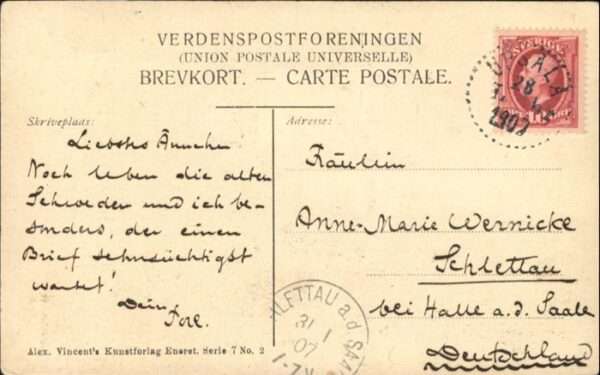 VERDENSPOSTFORENINGEN
(UNION POSTALE UNIVERSELLE)
BREVKORT. — CARTE POSTALE.
Skriveplads:
Liebstes Ännchen!
Noch leben die alten
Schweden und ich be-
sonders, der einen
Brief sehnsüchtigst
wartet!
Dein
Tore.
Alex. Vincent's Kunstforlag Eneret. Serie 7 No. 2
Adresse:
Fräulein
Anne-Marie Wernicke
Schlettau
bei Halle a.d. Saale
Deutschland
SVERIGE
UPSALA
1907
HLETTAU a.d SAA
31
1
07